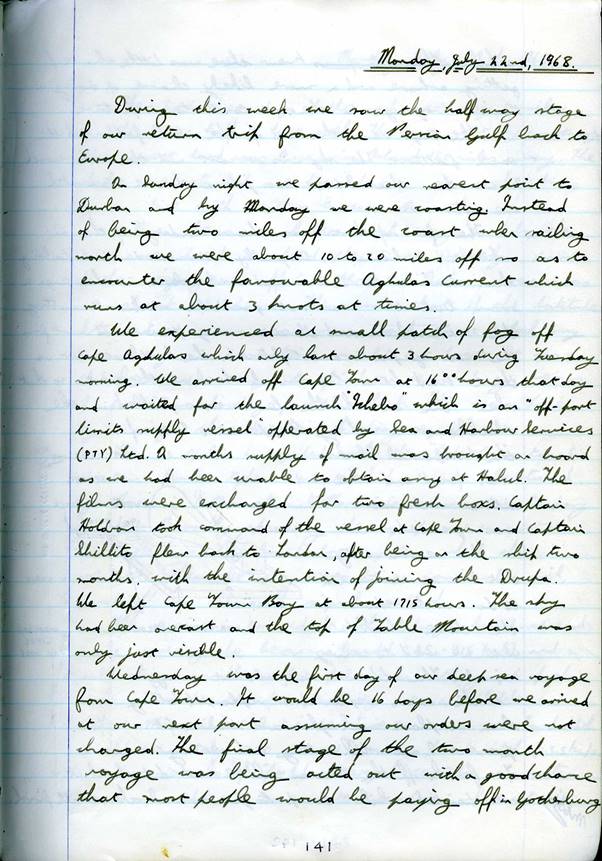 Monday, July 22nd, 1968.
During this week we saw the half way stage
of our return trip from the Persian Gulf back to
Europe.
On Sunday night we passed our nearest point to
Durban and by Monday we were coasting. Instead
of being two miles off the coast when sailing
north we were about 10 to 20 miles off so as to
encounter the favourable Aghulas Current which
runs at about 3 knots at times.
We experienced at small patch of fog off
Cape Aghulas which only last about 3 hours during Tuesday
morning. We arrived off Cape Town at 16°° hours that day
and waited for the launch "      " which is an "off-port
limits supply vessel" opperated by Sea and Harbour Services
(PTY) Ltd. A months supply of mail was brought on board
as we had been unable to obtain any at Halul. The
films were exchanged for two fresh boxs. Captain
Holdron took command of the vessel at Cape Town and Captain
Shillito flew back to London, after being on the ship two
months, with the intention of joining the Drupa.
We left Cape Town Bay at about 1715 hours. The sky
had been overcast and the top of Table Mountain was
only just visible.
Wednesday was the first day of our deep sea voyage
from Cape Town. It would be 16 days before we arrived
at our next port assuming our orders were not
changed. The final stage of the two month
voyage was being acted out with a good chance
that most people would be paying off in Gothenburg
141